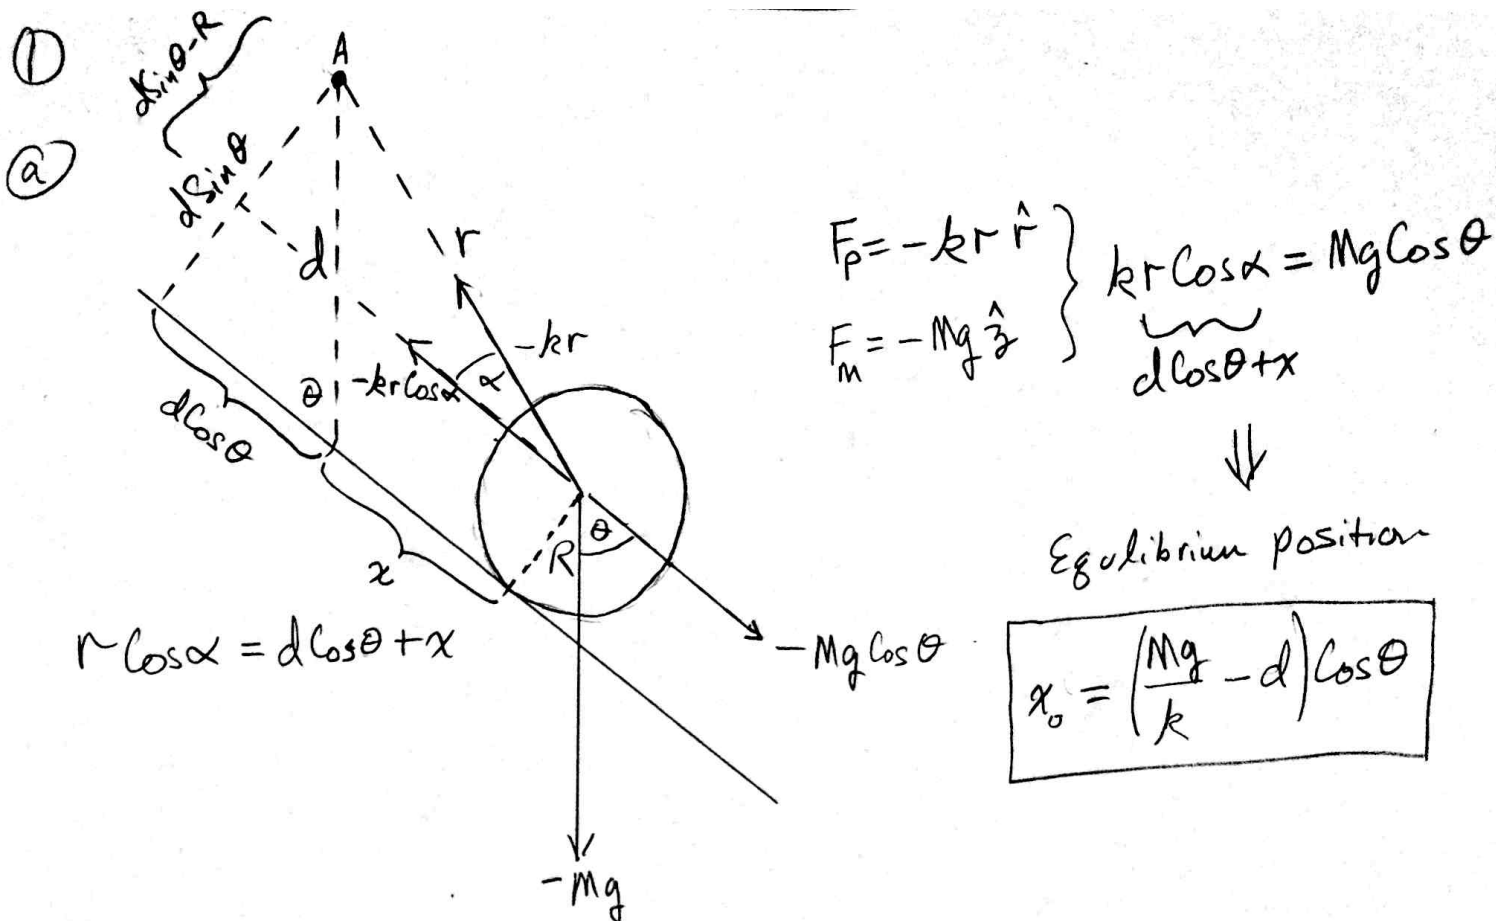 ①
ⓐ
dSinθ-R
A
dSinθ
d
r
-kr
α
-krCosα
θ
dCosθ
x
R
θ
-MgCosθ
-Mg
r Cosα = dCosθ + x
F_p = -kr r̂
F_m = -Mg ẑ
kr Cosα = Mg Cosθ
dCosθ+x
⇓
Equlibrium position
x₀ = (Mg/k - d) Cosθ